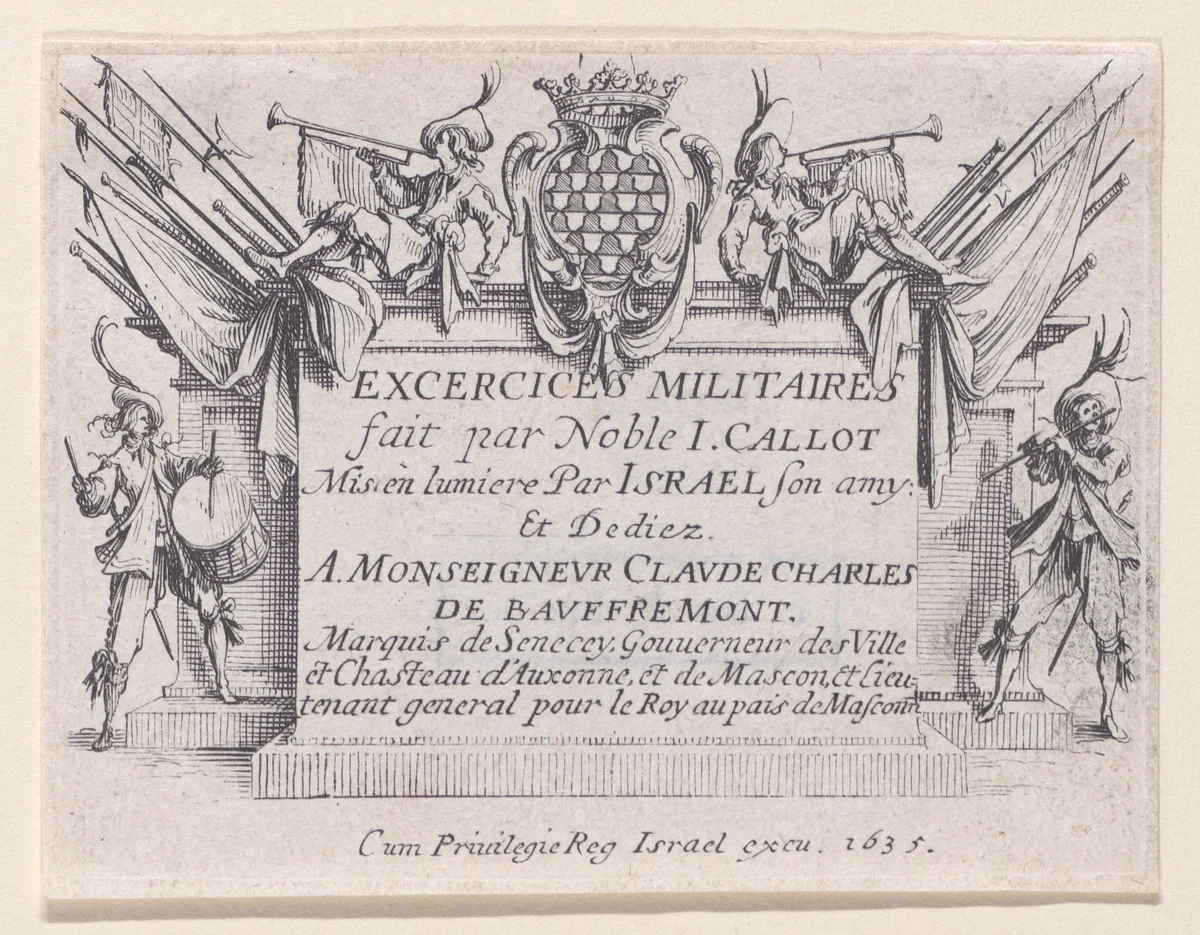 EXCERCICES MILITAIRES
fait par Noble I. CALLOT
Mis en lumiere Par ISRAEL son amy.
Et Dediez.
A. MONSEIGNEVR CLAVDE CHARLES
DE BAVFFREMONT.
Marquis de Senecey, Gouuerneur des Ville
et Chasteau d'Auxonne, et de Mascon, et Lieu-
tenant general pour le Roy au pais de Masconn
Cum Priuilegie Reg Israel excu. 1635.